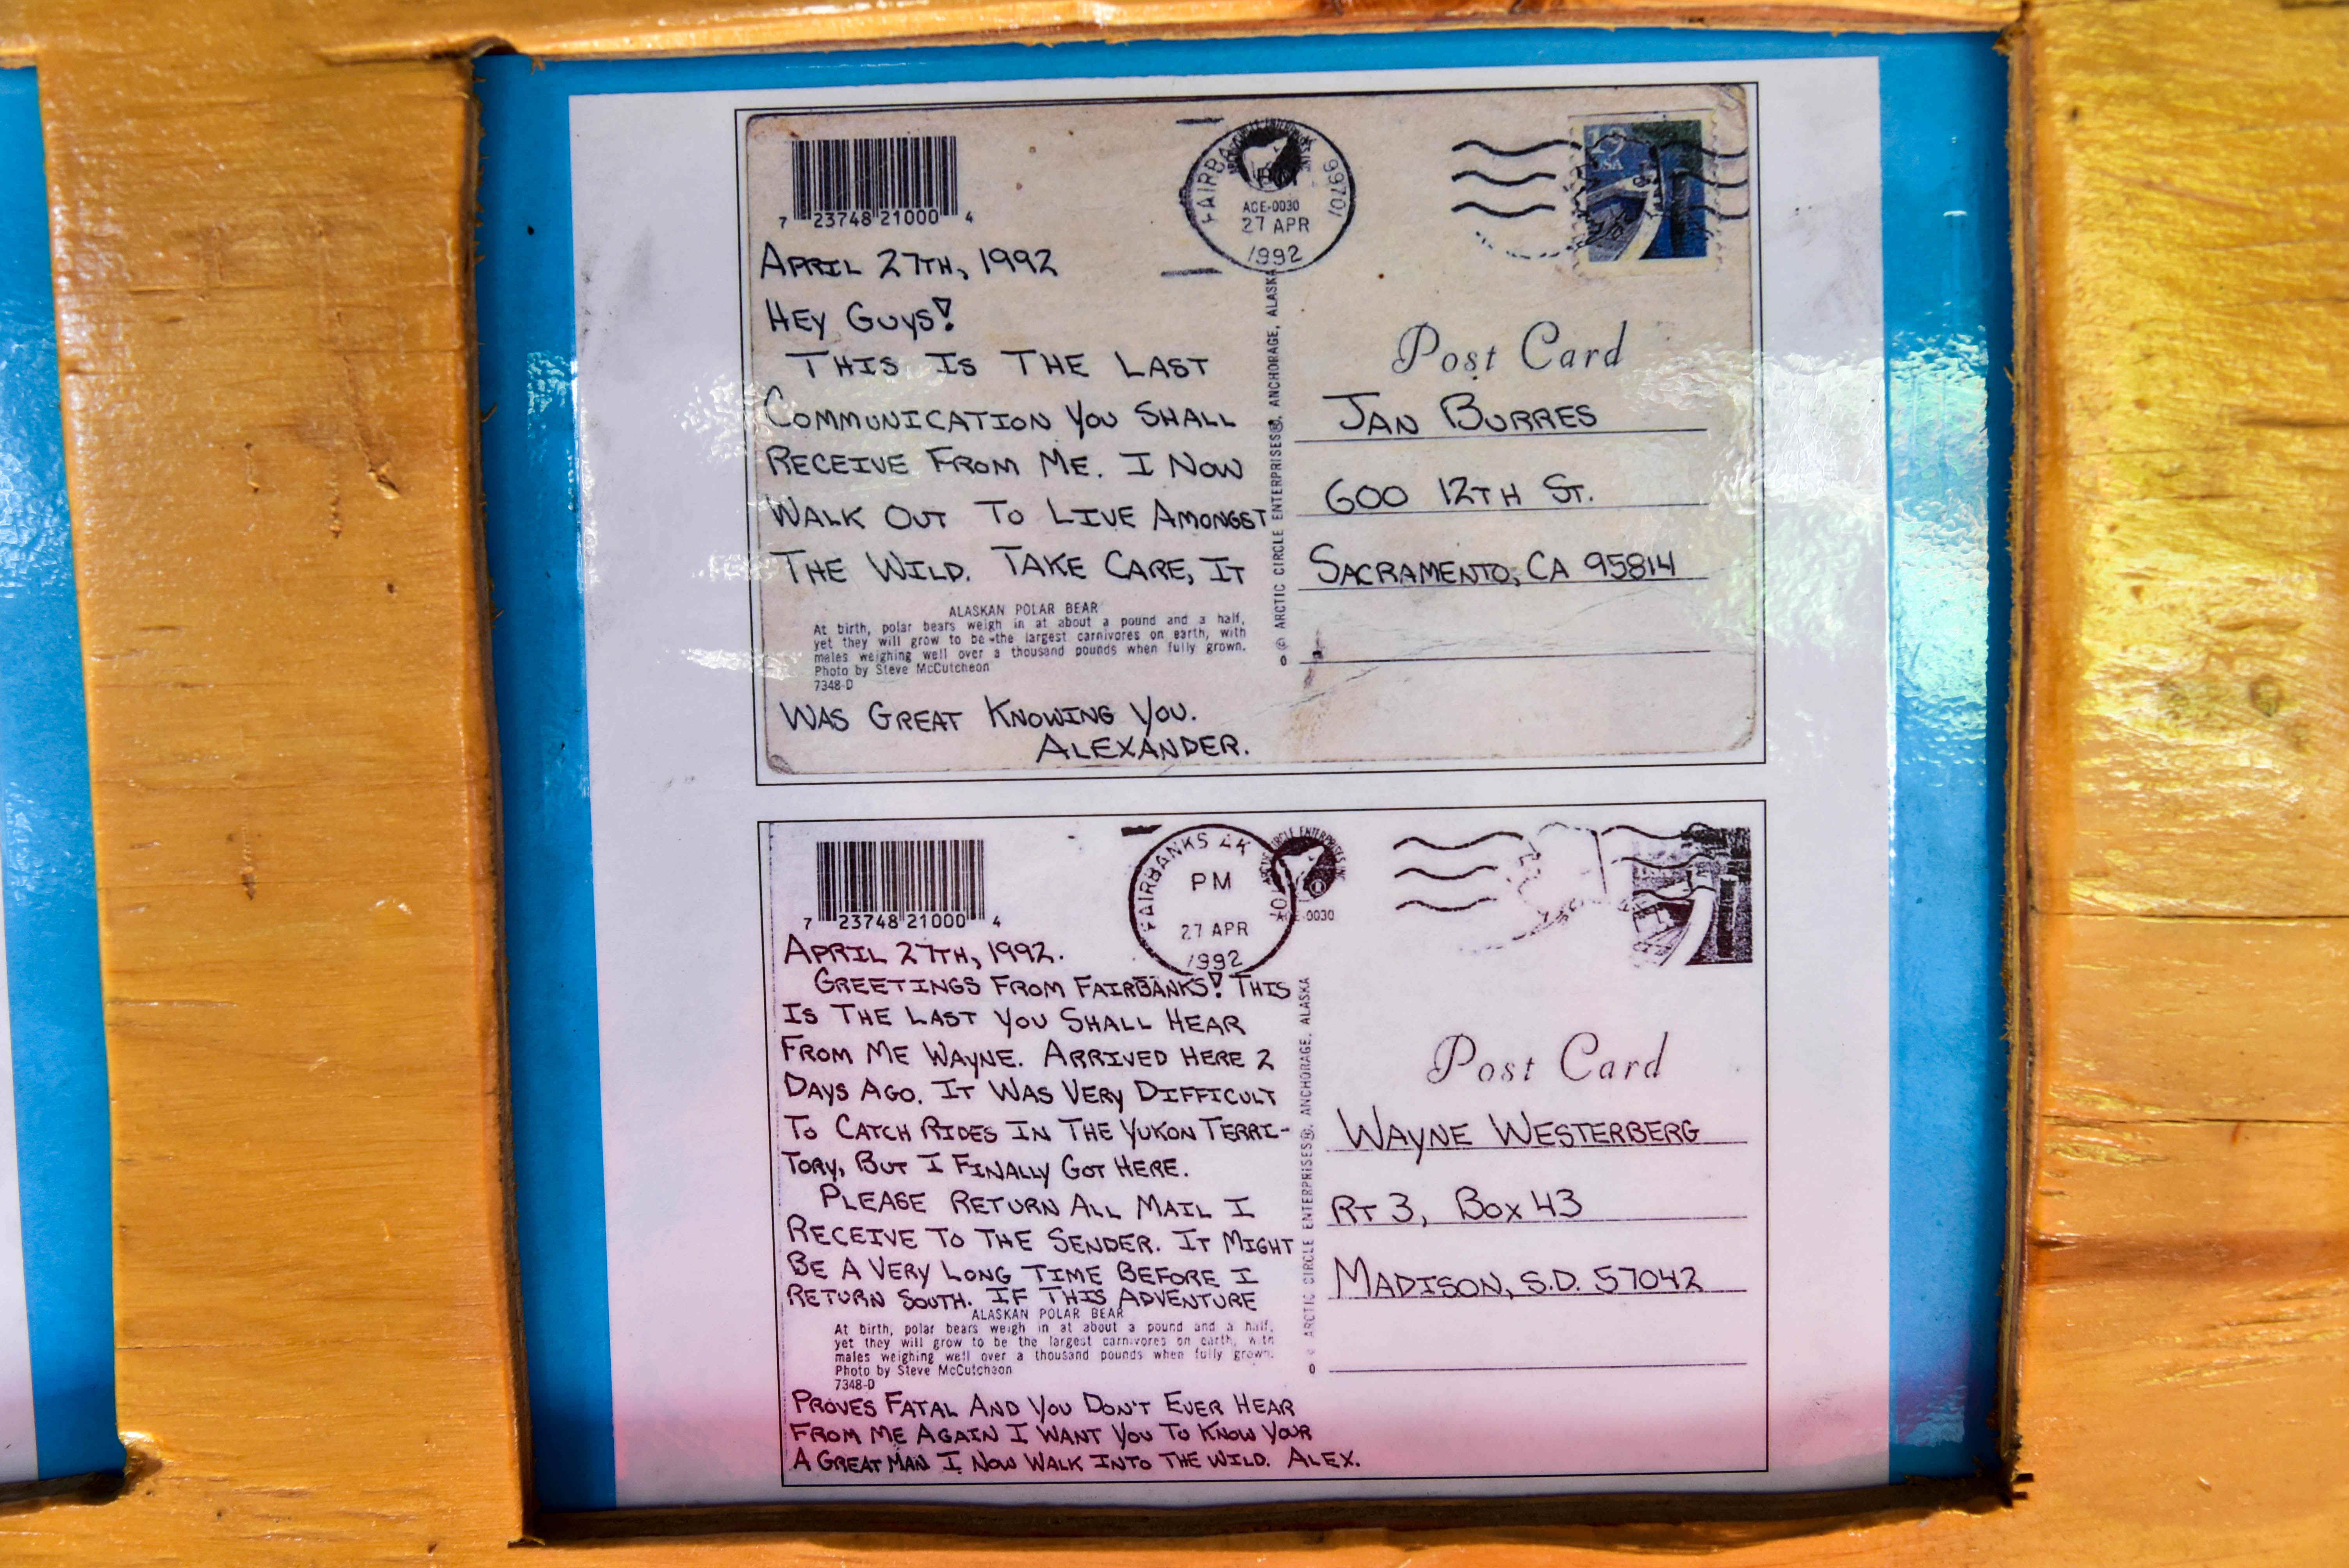 7 23748 21000 4
FAIRBA 99701
ACE-0030
27 APR
1992
USA
APRIL 27TH, 1992
HEY GUYS!
THIS IS THE LAST
COMMUNICATION YOU SHALL
RECEIVE FROM ME. I NOW
WALK OUT TO LIVE AMONGST
THE WILD. TAKE CARE, IT
ALASKAN POLAR BEAR
At birth, polar bears weigh in at about a pound and a half,
yet they will grow to be the largest carnivores on earth, with
males weighing well over a thousand pounds when fully grown.
Photo by Steve McCutcheon
7348-D
WAS GREAT KNOWING YOU.
ALEXANDER.
© ARCTIC CIRCLE ENTERPRISES®, ANCHORAGE, ALASKA
0
Post Card
JAN BURRES
600 12TH ST.
SACRAMENTO, CA 95814
7 23748 21000 4
FAIRBANKS AK
PM
27 APR
1992
ARCTIC CIRCLE ENTERPRISES
ACE-0030
APRIL 27TH, 1992.
GREETINGS FROM FAIRBANKS! THIS
IS THE LAST YOU SHALL HEAR
FROM ME WAYNE. ARRIVED HERE 2
DAYS AGO. IT WAS VERY DIFFICULT
TO CATCH RIDES IN THE YUKON TERRI-
TORY, BUT I FINALLY GOT HERE.
PLEASE RETURN ALL MAIL I
RECEIVE TO THE SENDER. IT MIGHT
BE A VERY LONG TIME BEFORE I
RETURN SOUTH. IF THIS ADVENTURE
ALASKAN POLAR BEAR
At birth, polar bears weigh in at about a pound and a half,
yet they will grow to be the largest carnivores on earth, with
males weighing well over a thousand pounds when fully grown.
Photo by Steve McCutcheon
7348-D
PROVES FATAL AND YOU DON'T EVER HEAR
FROM ME AGAIN I WANT YOU TO KNOW YOUR
A GREAT MAN I NOW WALK INTO THE WILD. ALEX.
© ARCTIC CIRCLE ENTERPRISES®, ANCHORAGE, ALASKA
0
Post Card
WAYNE WESTERBERG
RT 3, BOX 43
MADISON, S.D. 57042